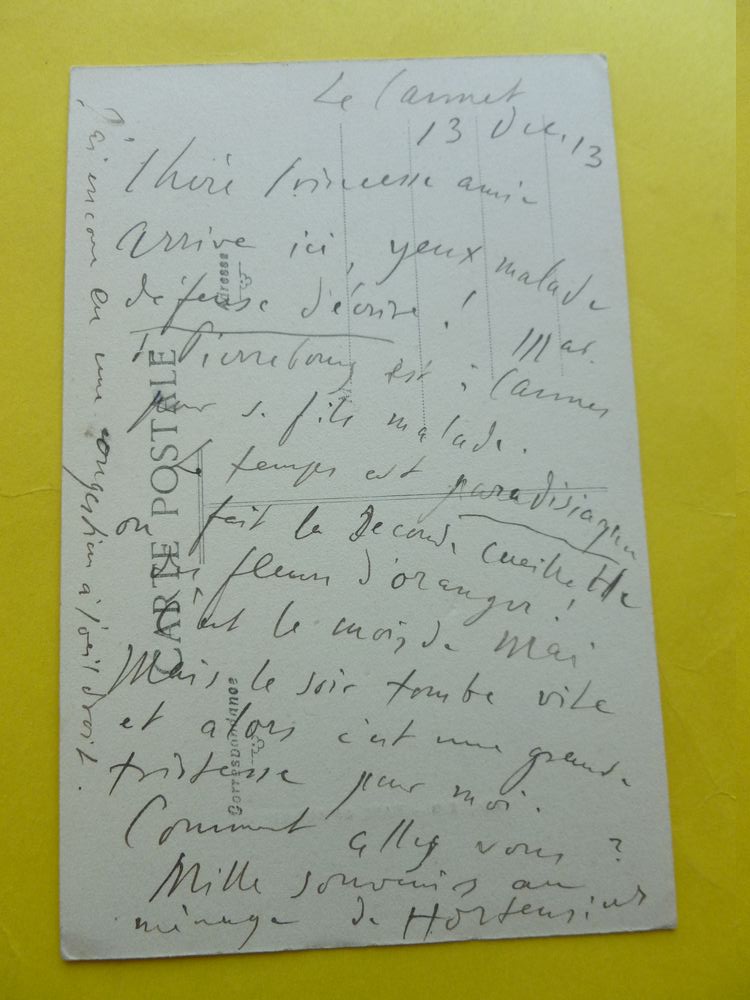 Le Cannet
13 Dec. 13
Chère Princesse amie
Arrive ici, yeux malade
défense d'écrire! Mar.
de Pierrebourg est à Cannes
pour sa fille malade.
Le temps est paradisiaque
on fait la seconde cueillette
des fleurs d'oranger!
C'est le mois de Mai
Mais le soir tombe vite
et alors c'est une grande
tristesse pour moi.
Comment allez vous?
Mille souvenirs au
ménage de Hortensias
J'ai encore eu une congestion à l'oeil droit.
CARTE POSTALE
Correspondance
Adresse